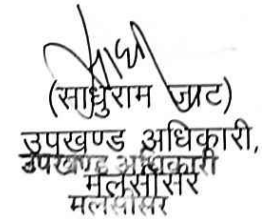 (साधुराम जाट)
उपखण्ड अधिकारी,
उपखण्ड अधिकारी
मलसीसर
मलसीसर